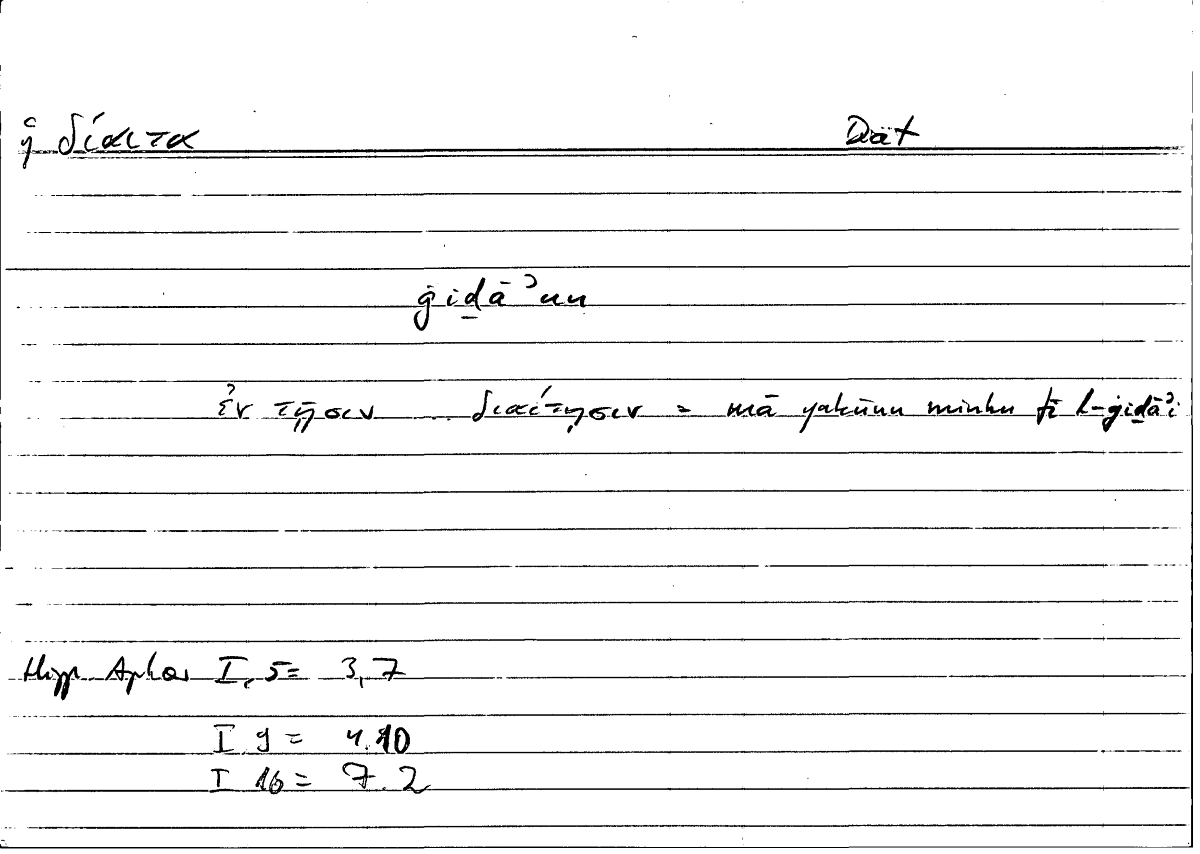 ἡ δίαιτα Diät
ġiḏāʾun
ἐν τῇσιν διαίτῃσιν = mā yakūnu minhu fī l-ġiḏāʾi
Hipp Aphor I, 5 = 3,7
I 9 = 4.10
I 16 = 7.2